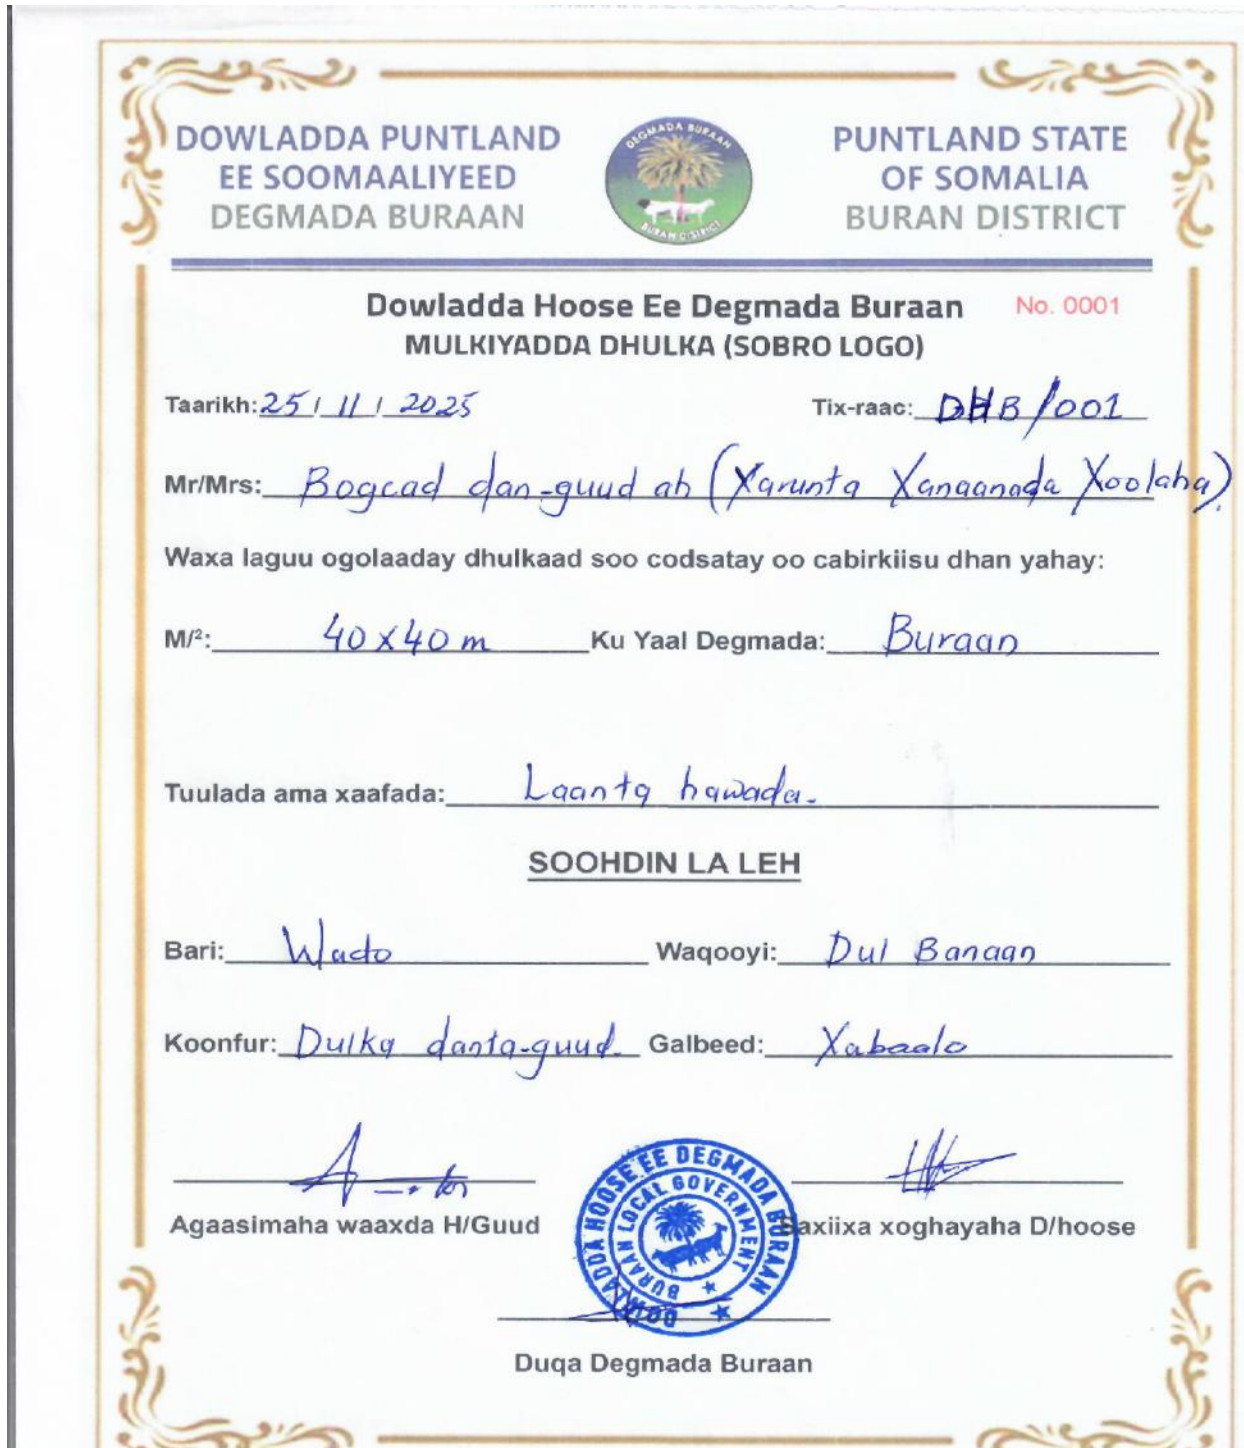 DOWLADDA PUNTLAND
EE SOOMAALIYEED
DEGMADA BURAAN
DEGMADA BURAAN
BURAN DISTRICT
PUNTLAND STATE
OF SOMALIA
BURAN DISTRICT
Dowladda Hoose Ee Degmada Buraan No. 0001
MULKIYADDA DHULKA (SOBRO LOGO)
Taarikh: 25 / 11 / 2025 Tix-raac: DHB/001
Mr/Mrs: Bogcad dan-guud ah (Xarunta Xanaanada Xoolaha).
Waxa laguu ogolaaday dhulkaad soo codsatay oo cabirkiisu dhan yahay:
M/²: 40x40 m Ku Yaal Degmada: Buraan
Tuulada ama xaafada: Laanta hawada.
SOOHDIN LA LEH
Bari: Wado Waqooyi: Dul Banaan
Koonfur: Dulka danta-guud. Galbeed: Xabaalo
Agaasimaha waaxda H/Guud Saxiixa xoghayaha D/hoose
DOWLADDA HOOSE EE DEGMADA BURAAN
BURAAN LOCAL GOVERNMENT
Duqa Degmada Buraan